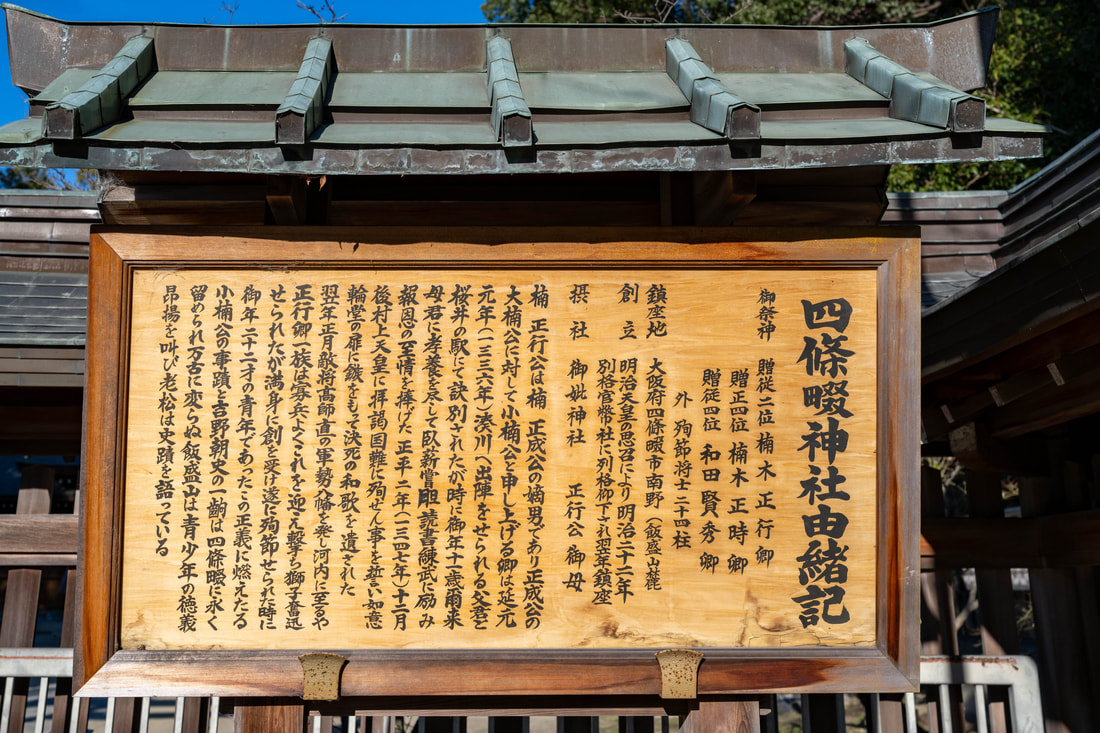 四條畷神社由緒記
御祭神　贈従二位　楠木正行卿
贈正四位　楠木正時卿
贈従四位　和田賢秀卿
外　殉節将士二十四柱
鎮座地　大阪府四條畷市南野（飯盛山麓
創立　明治天皇の思召により明治二十二年
別格官幣社に列格仰下され翌年鎮座
摂社　御妣神社　正行公御母
楠　正行公は楠　正成公の嫡男であり正成公の
大楠公に対して小楠公と申し上げる卿は延元
元年（一三三六年）湊川へ出陣をせられる父君と
桜井の駅にて訣別されたが時に御年十一歳爾来
母君に孝養を尽して臥薪嘗胆読書練武に励み
報恩の至情を捧げた正平二年（一三四七年）十二月
後村上天皇に拝謁国難に殉ぜん事を誓い如意
輪堂の扉に鏃をもって決死の和歌を遺された
翌年正月敵将高師直の軍勢八幡を発し河内に至るや
正行卿一族は寡兵よくこれを迎え撃ち獅子奮迅
せられたが満身に創を受け遂に殉節せられた時に
御年二十二才の青年であったこの正義に燃えたる
小楠公の事蹟と吉野朝史の一齣は四條畷に永く
留められ万古に変らぬ飯盛山は青少年の徳義
昂揚を叫び老松は史蹟を語っている